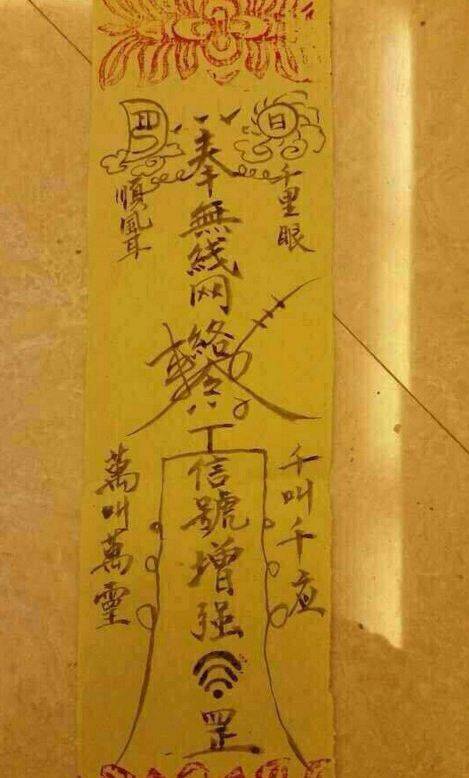 日
月
千里眼
順風耳
奉無线网絡
敕令
信號增强
罡
千叫千应
萬叫萬靈